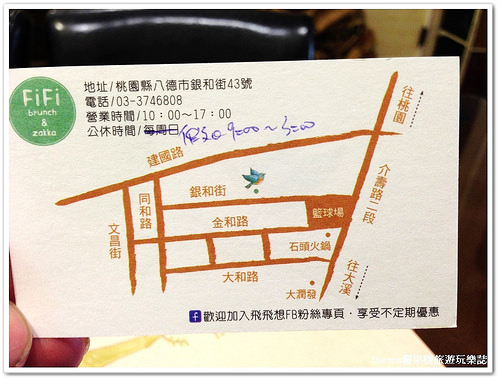 FiFi
brunch
&
zakka
地址/桃園縣八德市銀和街43號
電話/03-3746808
營業時間/10：00～17：00
公休時間/每周日
9:00～5:00
往桃園
建國路
介壽路二段
同和路
銀和街
文昌街
金和路
籃球場
石頭火鍋
大和路
往大溪
大潤發
歡迎加入飛飛想FB粉絲專頁，享受不定期優惠
旅遊玩樂誌